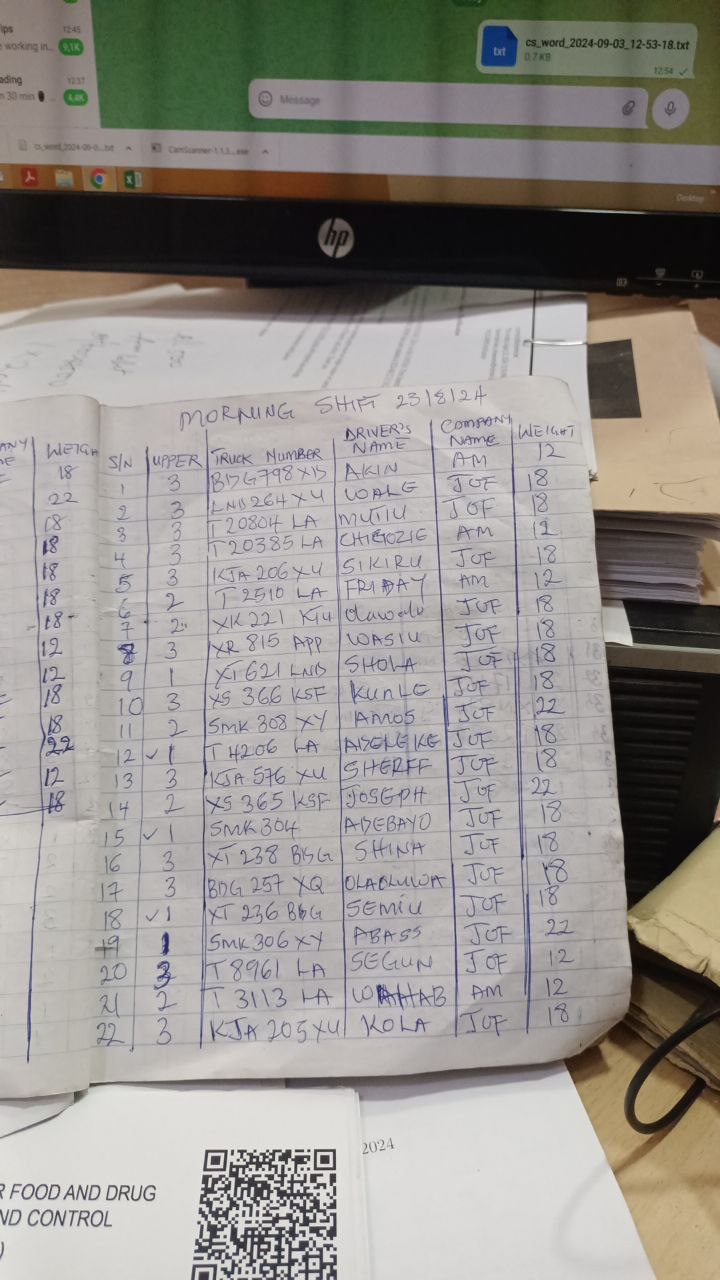 ips 12:45
working in.. 9,1K
ading 12:37
n 30 min 4,4K
cs_word_2024-09-03_12-53-18.txt
txt
0.7 KB
12:54
Message
cs_word_2024-09-0....txt CamScanner-1.1.3....exe
Desktop
hp
MORNING SHIFT 23/8/24
S/N UPPER TRUCK NUMBER DRIVER'S NAME COMPANY NAME WEIGHT
1 3 BDG798XD AKIN AM 12
2 3 LND264XU WALE JOF 18
3 3 T20804 LA MUTIU JOF 18
4 3 T20385 LA CHIGOZIE AM 12
5 3 KJA 206 XU SIKIRU JOF 18
6 2 T 2510 LA FRIDAY AM 12
7 2 XK 221 KTU dawodu JOF 18
8 3 XR 815 APP WASIU JOF 18
9 1 XT 621 LND SHOLA JOF 18
10 3 XS 366 KSF KUNLE JOF 18
11 2 SMK 308 XY AMOS JOF 22
12 ✓ 1 T 4206 LA ADELEKE JOF 18
13 3 KJA 576 XU SHERFF JOF 18
14 2 XS 365 KSF JOSEPH JOF 22
15 ✓ 1 SMK 304 ADEBAYO JOF 18
16 3 XT 238 BDG SHINA JOF 18
17 3 BDG 257 XQ OLAOLUWA JOF 18
18 ✓ 1 XT 236 BDG SEMIU JOF 18
19 1 SMK 306 XY ABASS JOF 22
20 3 T 8961 LA SEGUN JOF 12
21 2 T 3113 LA WAHAB AM 12
22 3 KJA 205 XU KOLA JOF 18
ANY WEIGH
18
22
18
18
18
18
18
12
12
18
18
22
12
18
2024
R FOOD AND DRUG
ND CONTROL
)